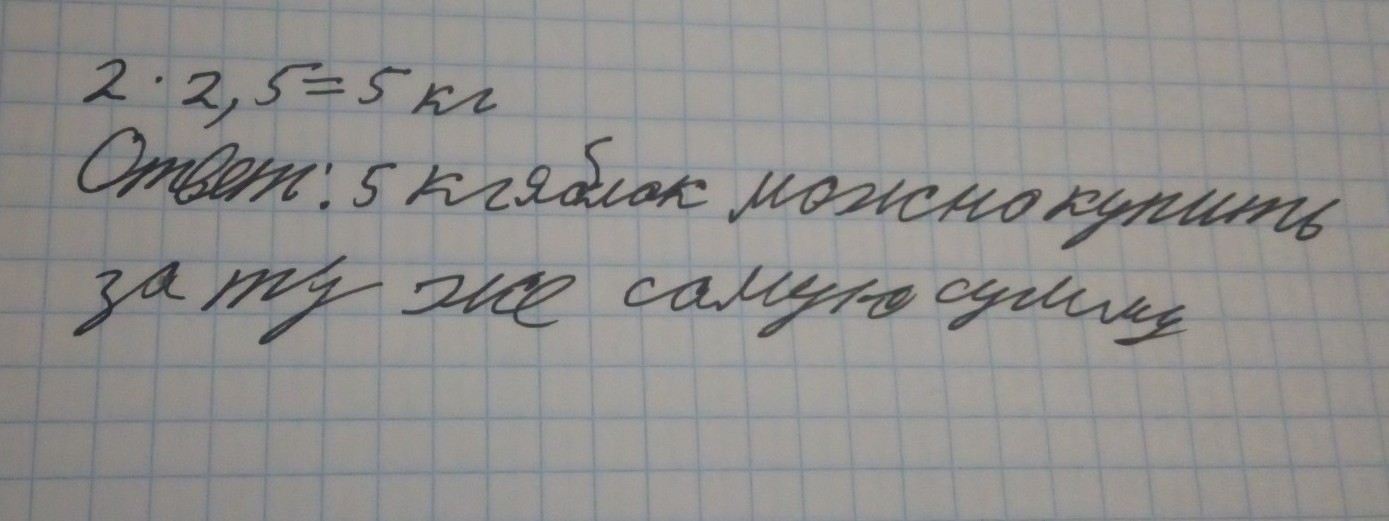 2 · 2,5 = 5 кг
Ответ: 5 кг яблок можно купить
за ту же самую сумму